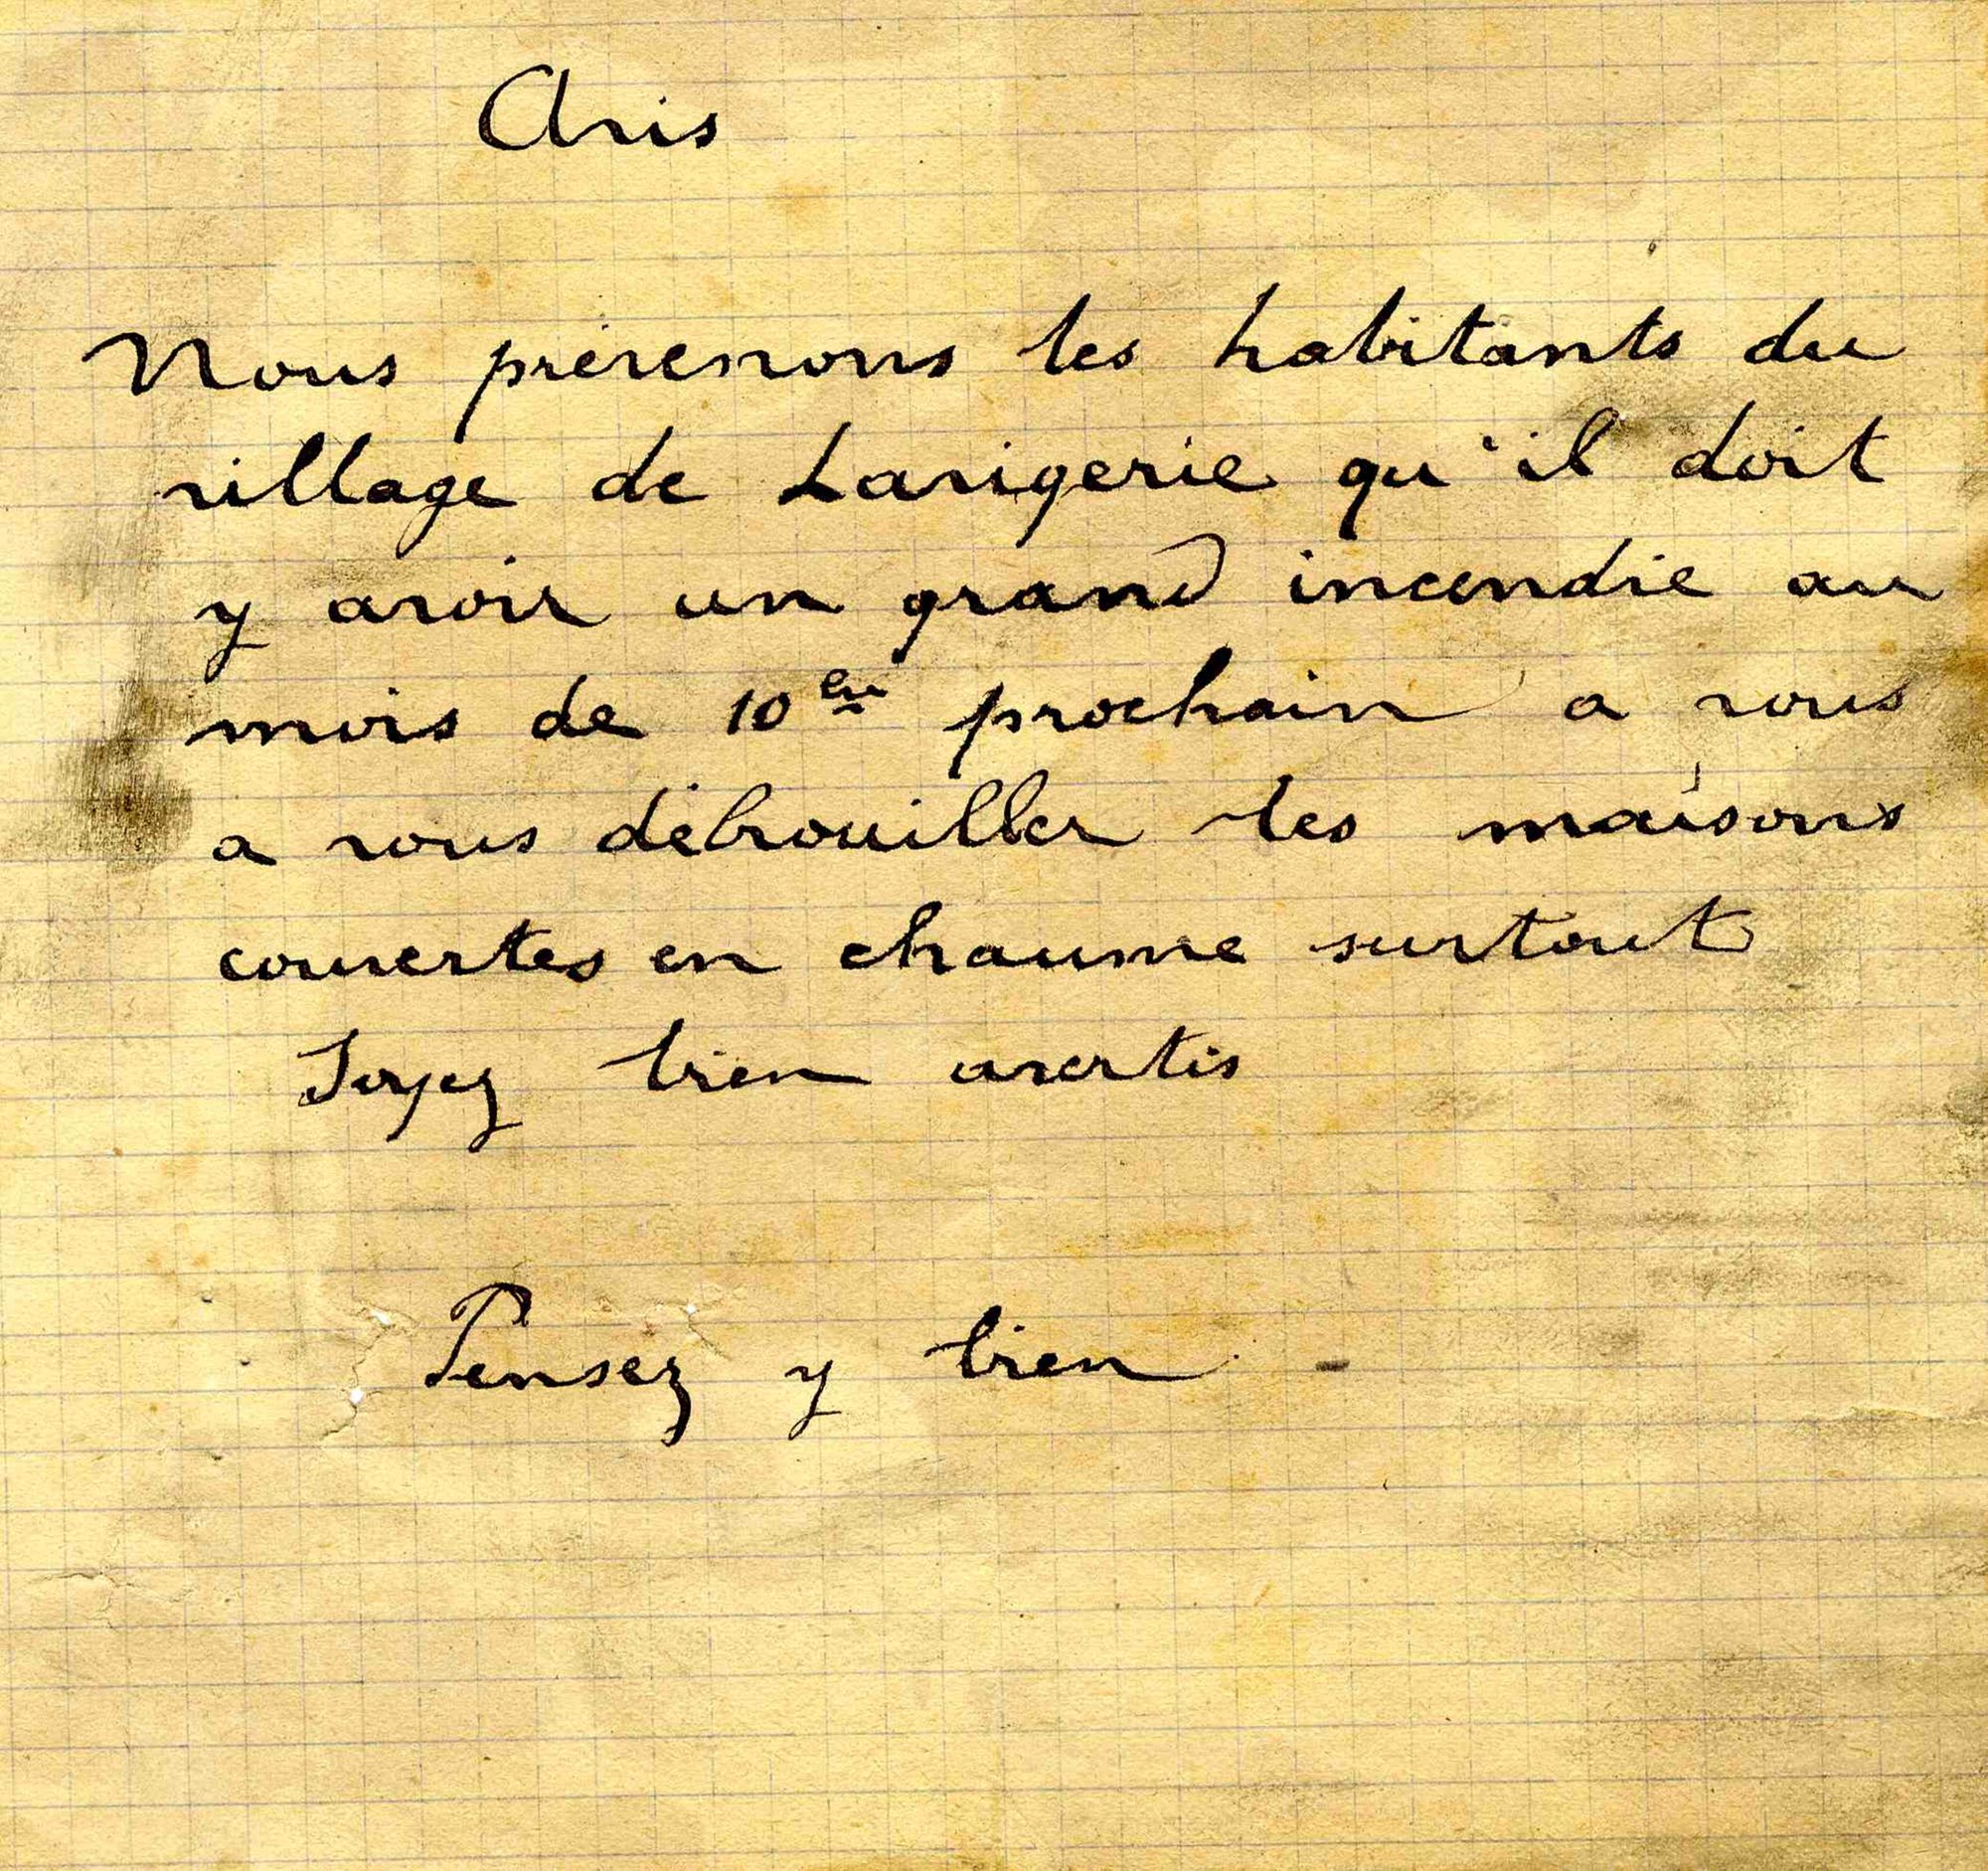 Avis
Nous prévenons les habitants du
village de Lavigerie qu'il doit
y avoir un grand incendie au
mois de 10bre prochain a vous
a vous débrouiller les maisons
couvertes en chaume surtout
Soyez bien avertis
Pensez y bien -